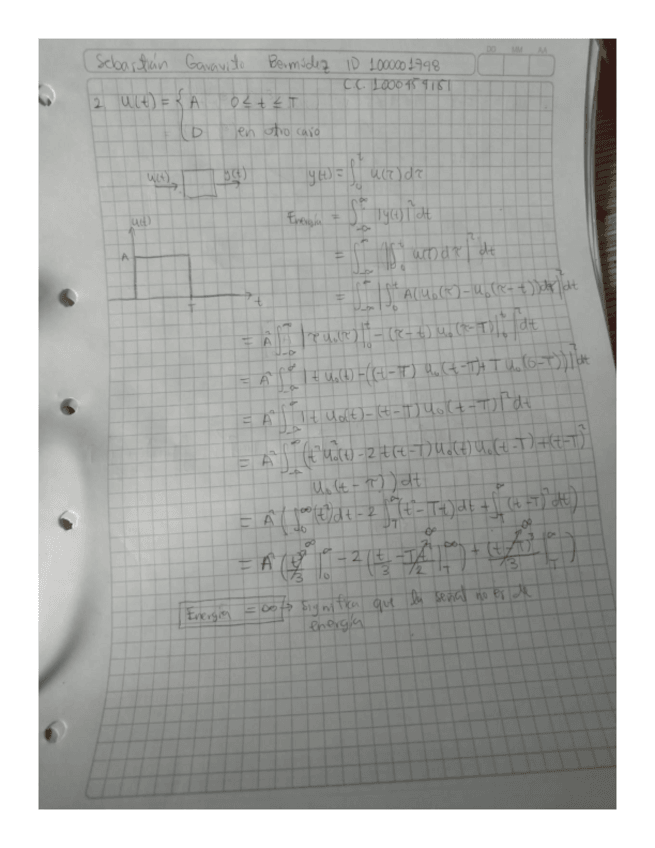 Sebastián Garavito Bermúdez ID 1000001798
DD MM AA
CC. 1000459151
2. u(t) = { A 0 ≤ t ≤ T
D en otro caso
u(t) → y(t) y(t) = ∫₀ᵗ u(τ) dτ
Energía = ∫_{-∞}^{∞} |y(t)|² dt
u(t)
= ∫_{-∞}^{∞} |∫₀ᵗ u(τ) dτ|² dt
A
= ∫_{-∞}^{∞} |∫₀ᵗ A(u₀(τ) - u₀(τ - t)) dτ|² dt
T t
= A² ∫_{-∞}^{∞} |τ u₀(τ)|₀ᵗ - (τ - t) u₀(τ - T)|₀ᵗ|² dt
= A² ∫_{-∞}^{∞} |t u₀(t) - ((t - T) u₀(t - T) + T u₀(0 - T))|² dt
= A² ∫_{-∞}^{∞} |t u₀(t) - (t - T) u₀(t - T)|² dt
= A² ∫_{-∞}^{∞} (t² u₀²(t) - 2t(t - T) u₀(t) u₀(t - T) + (t - T)²
u₀(t - T)) dt
= A² (∫₀^∞ (t²) dt - 2 ∫_T^∞ (t² - Tt) dt + ∫_T^∞ (t - T)² dt)
= A² (t³/3 |₀^∞ - 2 (t³/3 - Tt²/2 |_T^∞) + (t - T)³/3 |_T^∞)
Energía = ∞ → Significa que la señal no es de
energía